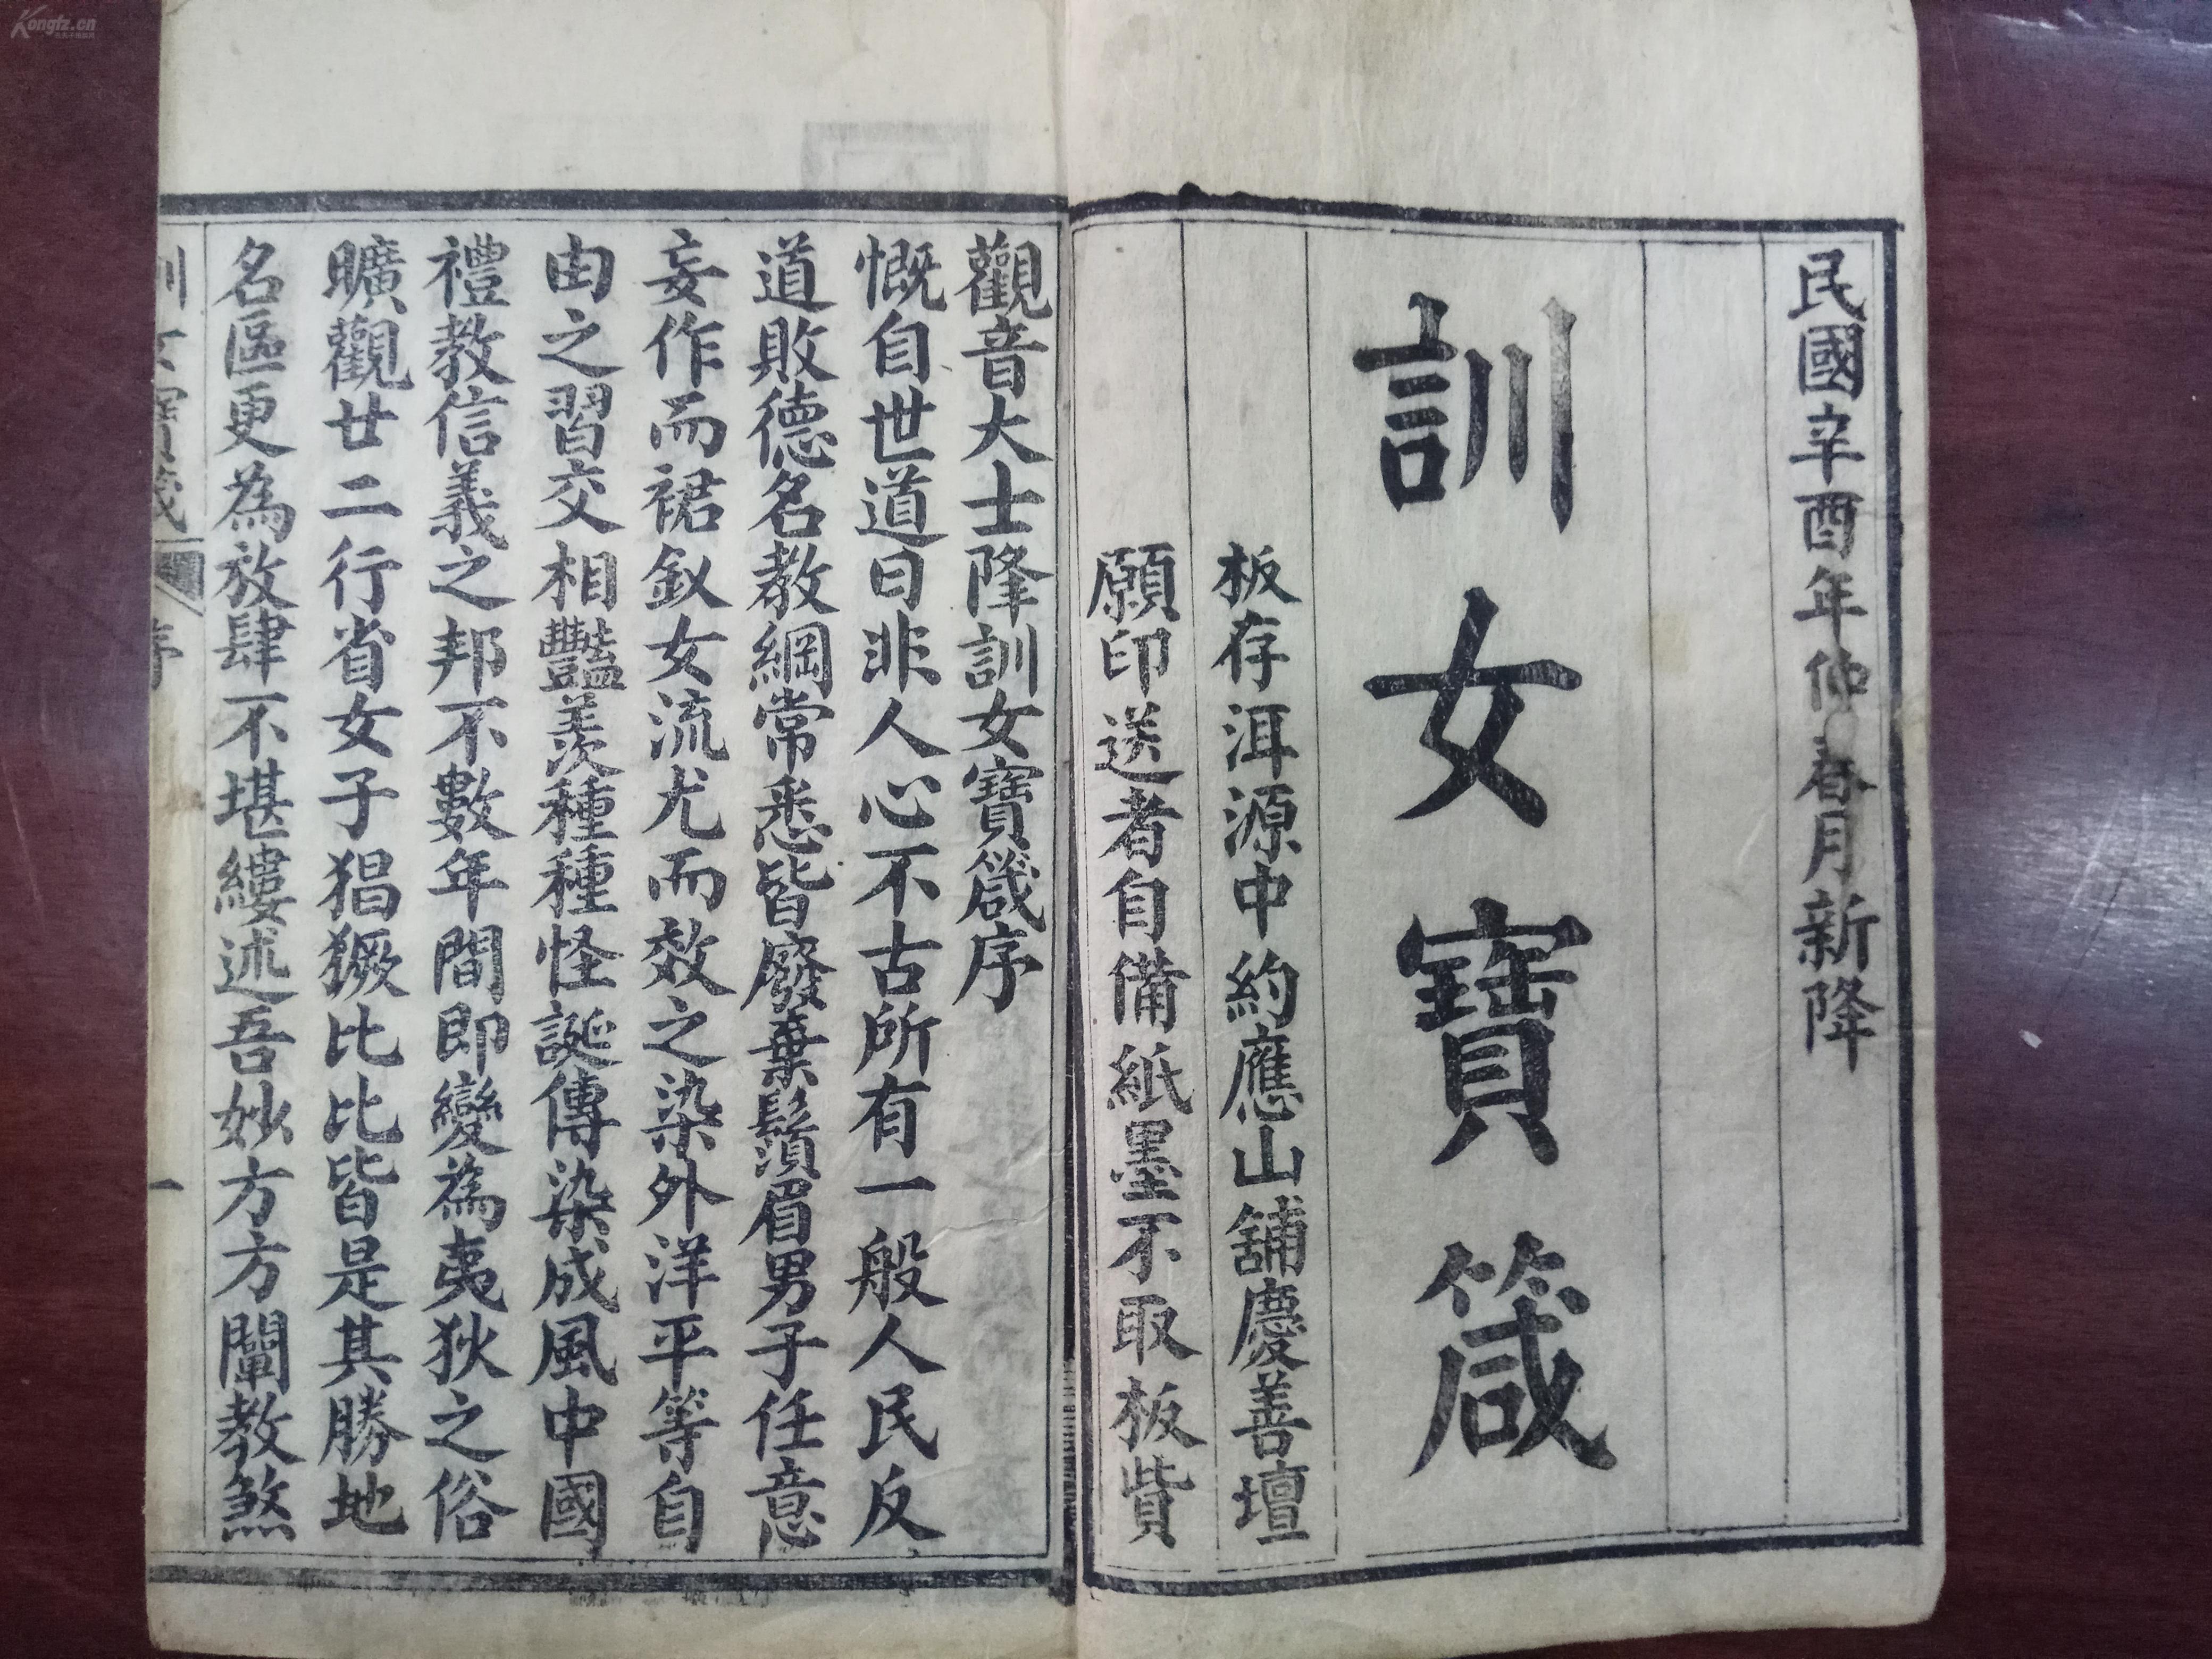 民國辛酉年仲春月新降
訓女寶箴
板存洱源中約應山舖慶善壇
願印送者自備紙墨不取板貲
觀音大士降訓女寶箴序
慨自世道日非人心不古所有一般人民反
道敗德名教綱常悉皆廢棄鬚眉男子任意
妄作而裙釵女流尤而效之染外洋平等自
由之習交相豔羨種種怪誕傳染成風中國
禮教信義之邦不數年間即變為夷狄之俗
曠觀廿二行省女子猖獗比比皆是其勝地
名區更為放肆不堪縷述吾妙方方闡教煞
訓女寶箴
序
一
Kongfz.cn